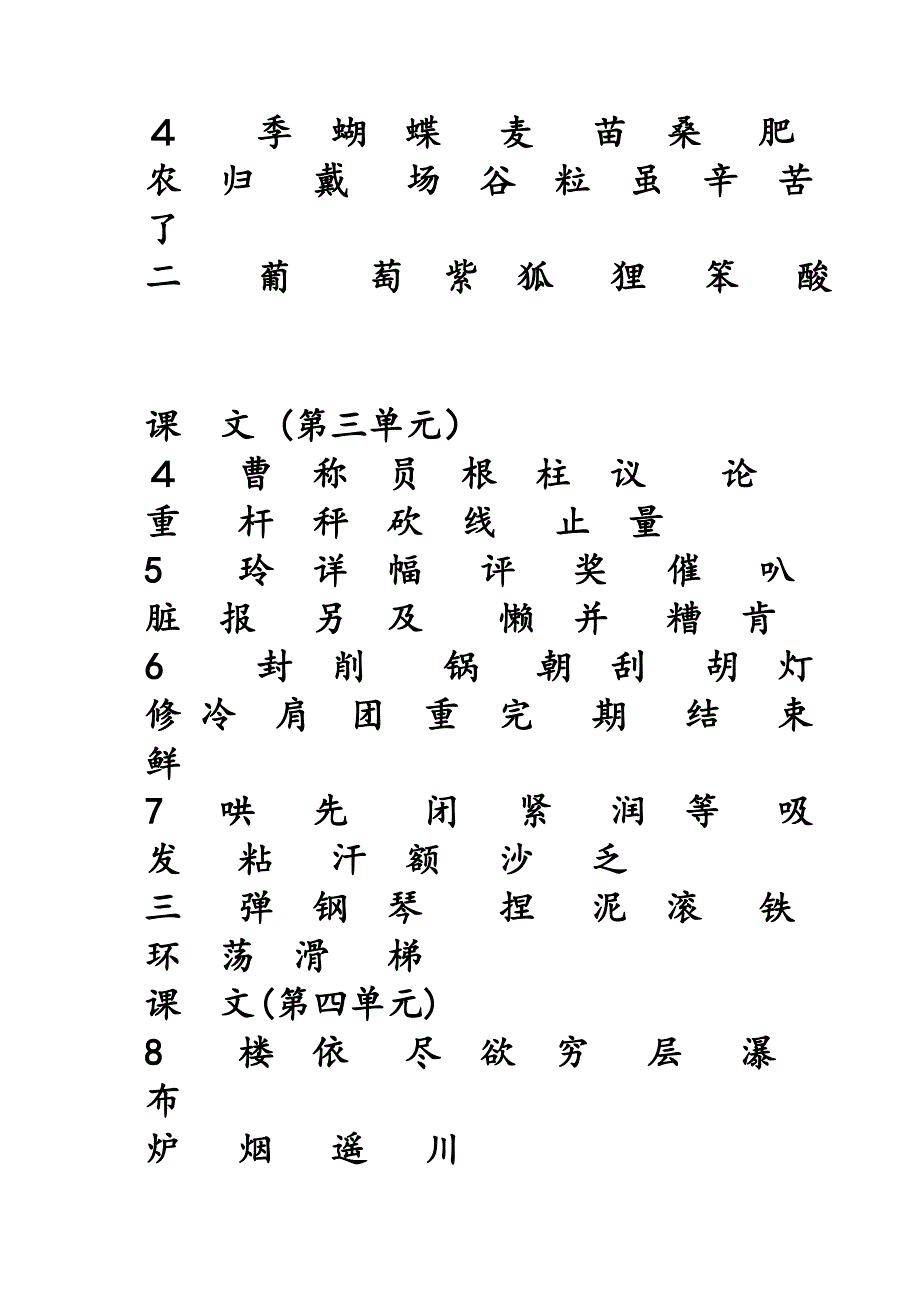 4 季 蝴 蝶 麦 苗 桑 肥
农 归 戴 场 谷 粒 虽 辛 苦
了
二 葡 萄 紫 狐 狸 笨 酸
课 文 (第三单元)
4 曹 称 员 根 柱 议 论
重 杆 秤 砍 线 止 量
5 玲 详 幅 评 奖 催 叭
脏 报 另 及 懒 并 糟 肯
6 封 削 锅 朝 刮 胡 灯
修 冷 肩 团 重 完 期 结 束
鲜
7 哄 先 闭 紧 润 等 吸
发 粘 汗 额 沙 乏
三 弹 钢 琴 捏 泥 滚 铁
环 荡 滑 梯
课 文(第四单元)
8 楼 依 尽 欲 穷 层 瀑
布
炉 烟 遥 川